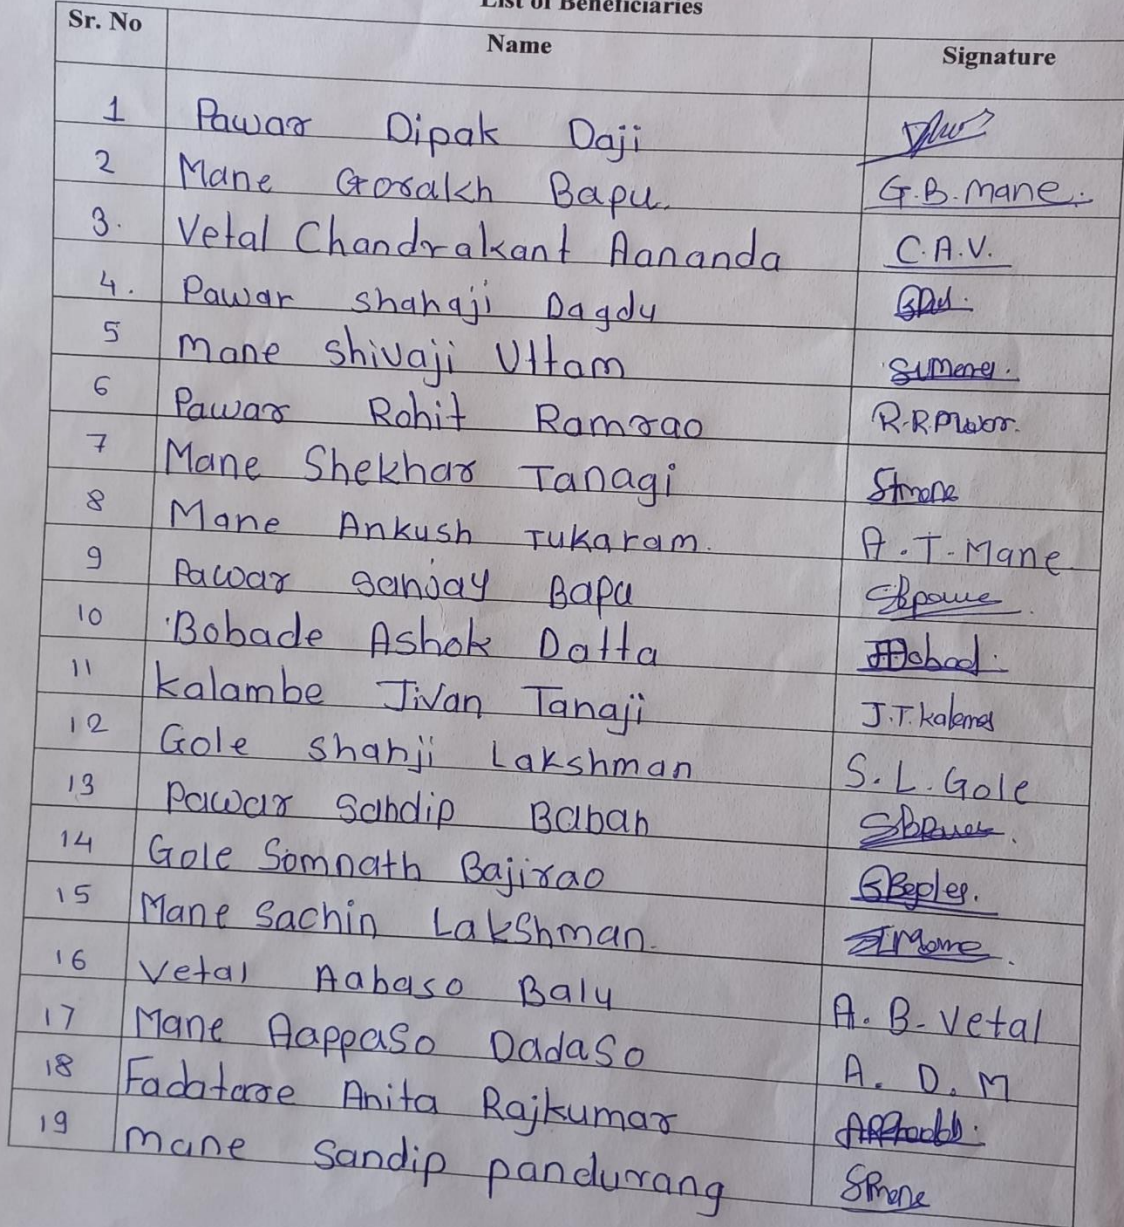 List of Beneficiaries
Sr. No Name Signature
1 Pawar Dipak Daji
2 Mane Gorakh Bapu. G.B.Mane.
3. Vetal Chandrakant Aananda C.A.V.
4. Pawar shahaji Dagdu
5 Mane Shivaji Uttam
6 Pawar Rohit Ramrao
7 Mane Shekhar Tanagi
8 Mane Ankush Tukaram. A.T.Mane
9 Pawar Sanjay Bapu
10 Bobade Ashok Datta
11 Kalambe Jivan Tanaji J.T.
12 Gole shahji Lakshman S.L.Gole
13 Pawar Sandip Baban
14 Gole Somnath Bajirao
15 Mane Sachin Lakshman.
16 Vetal Aabaso Balu A.B.Vetal
17 Mane Aappaso Dadaso A.D.M
18 Fadatare Anita Rajkumar
19 Mane Sandip pandurang